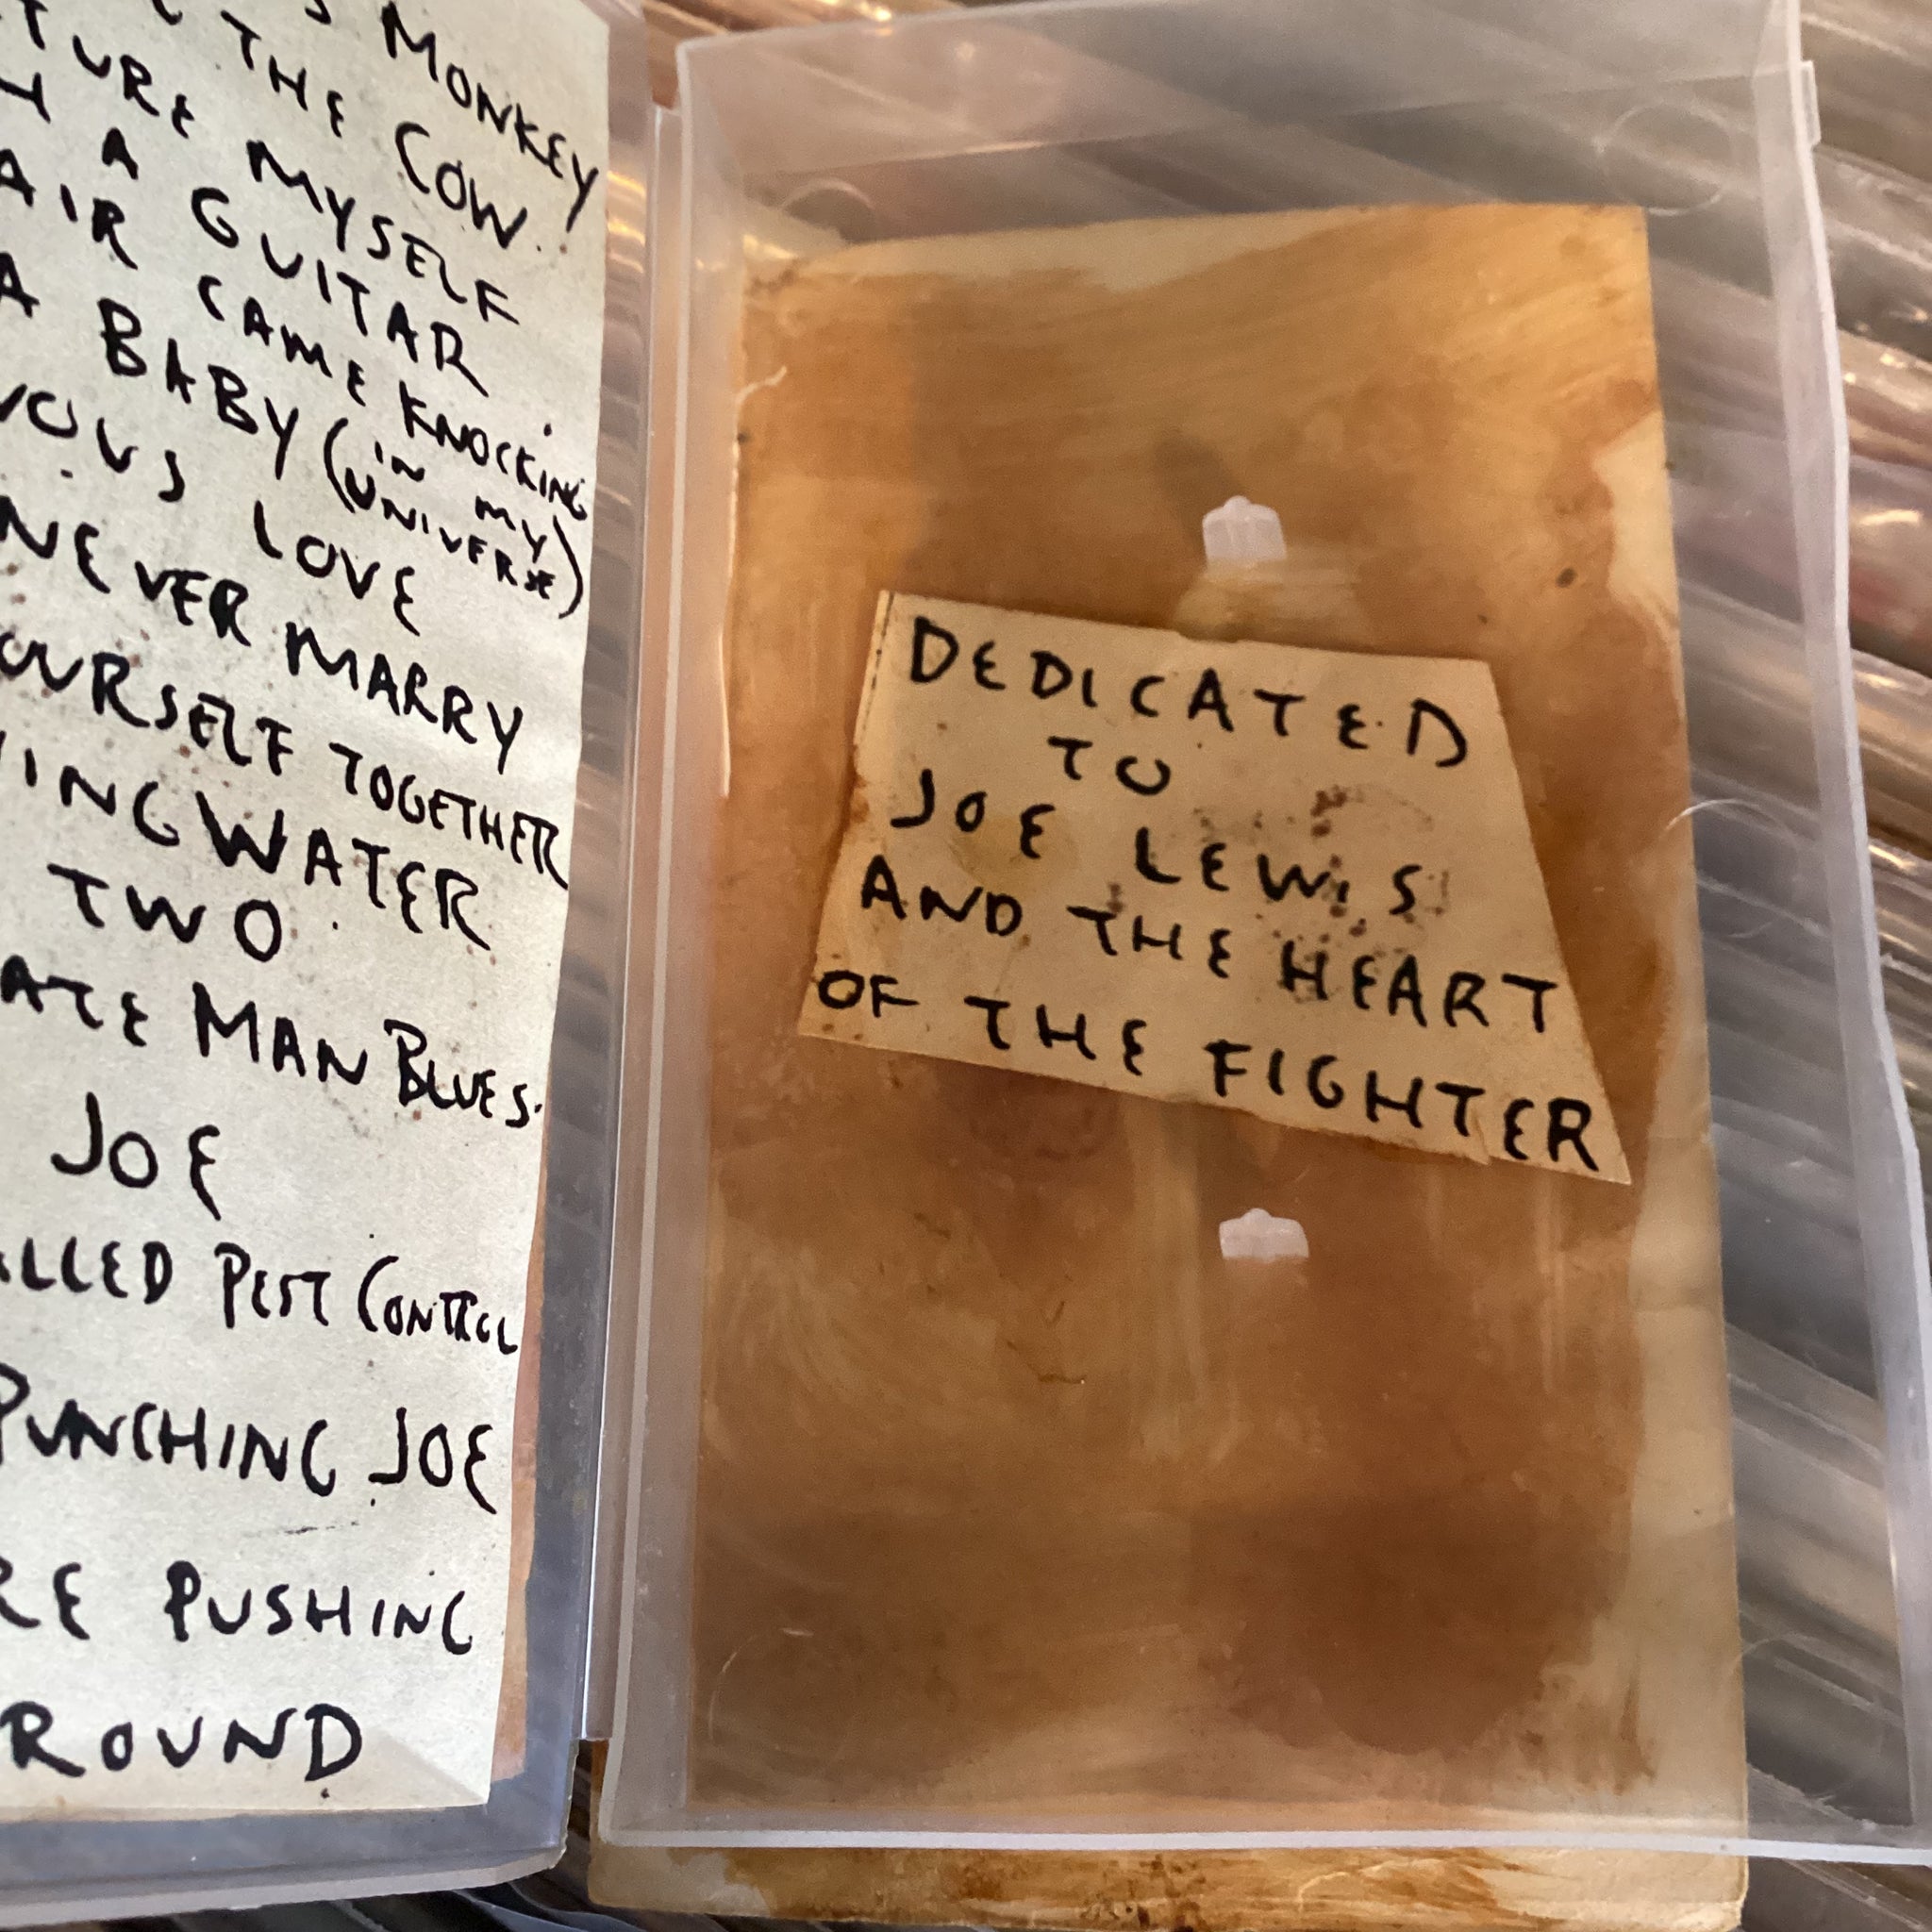 MONKEY
THE COW
TURE MYSELF
H A GUITAR
AIR CAME KNOCKING
A BABY (IN MY UNIVERSE)
VOUS LOVE
NEVER MARRY
OURSELF TOGETHER
INGWATER
TWO
ATE MAN BLUES.
JOE
LLED PEST CONTROL
PUNCHING JOE
RE PUSHING
ROUND
DEDICATED
TO
JOE LEWIS
AND THE HEART
OF THE FIGHTER